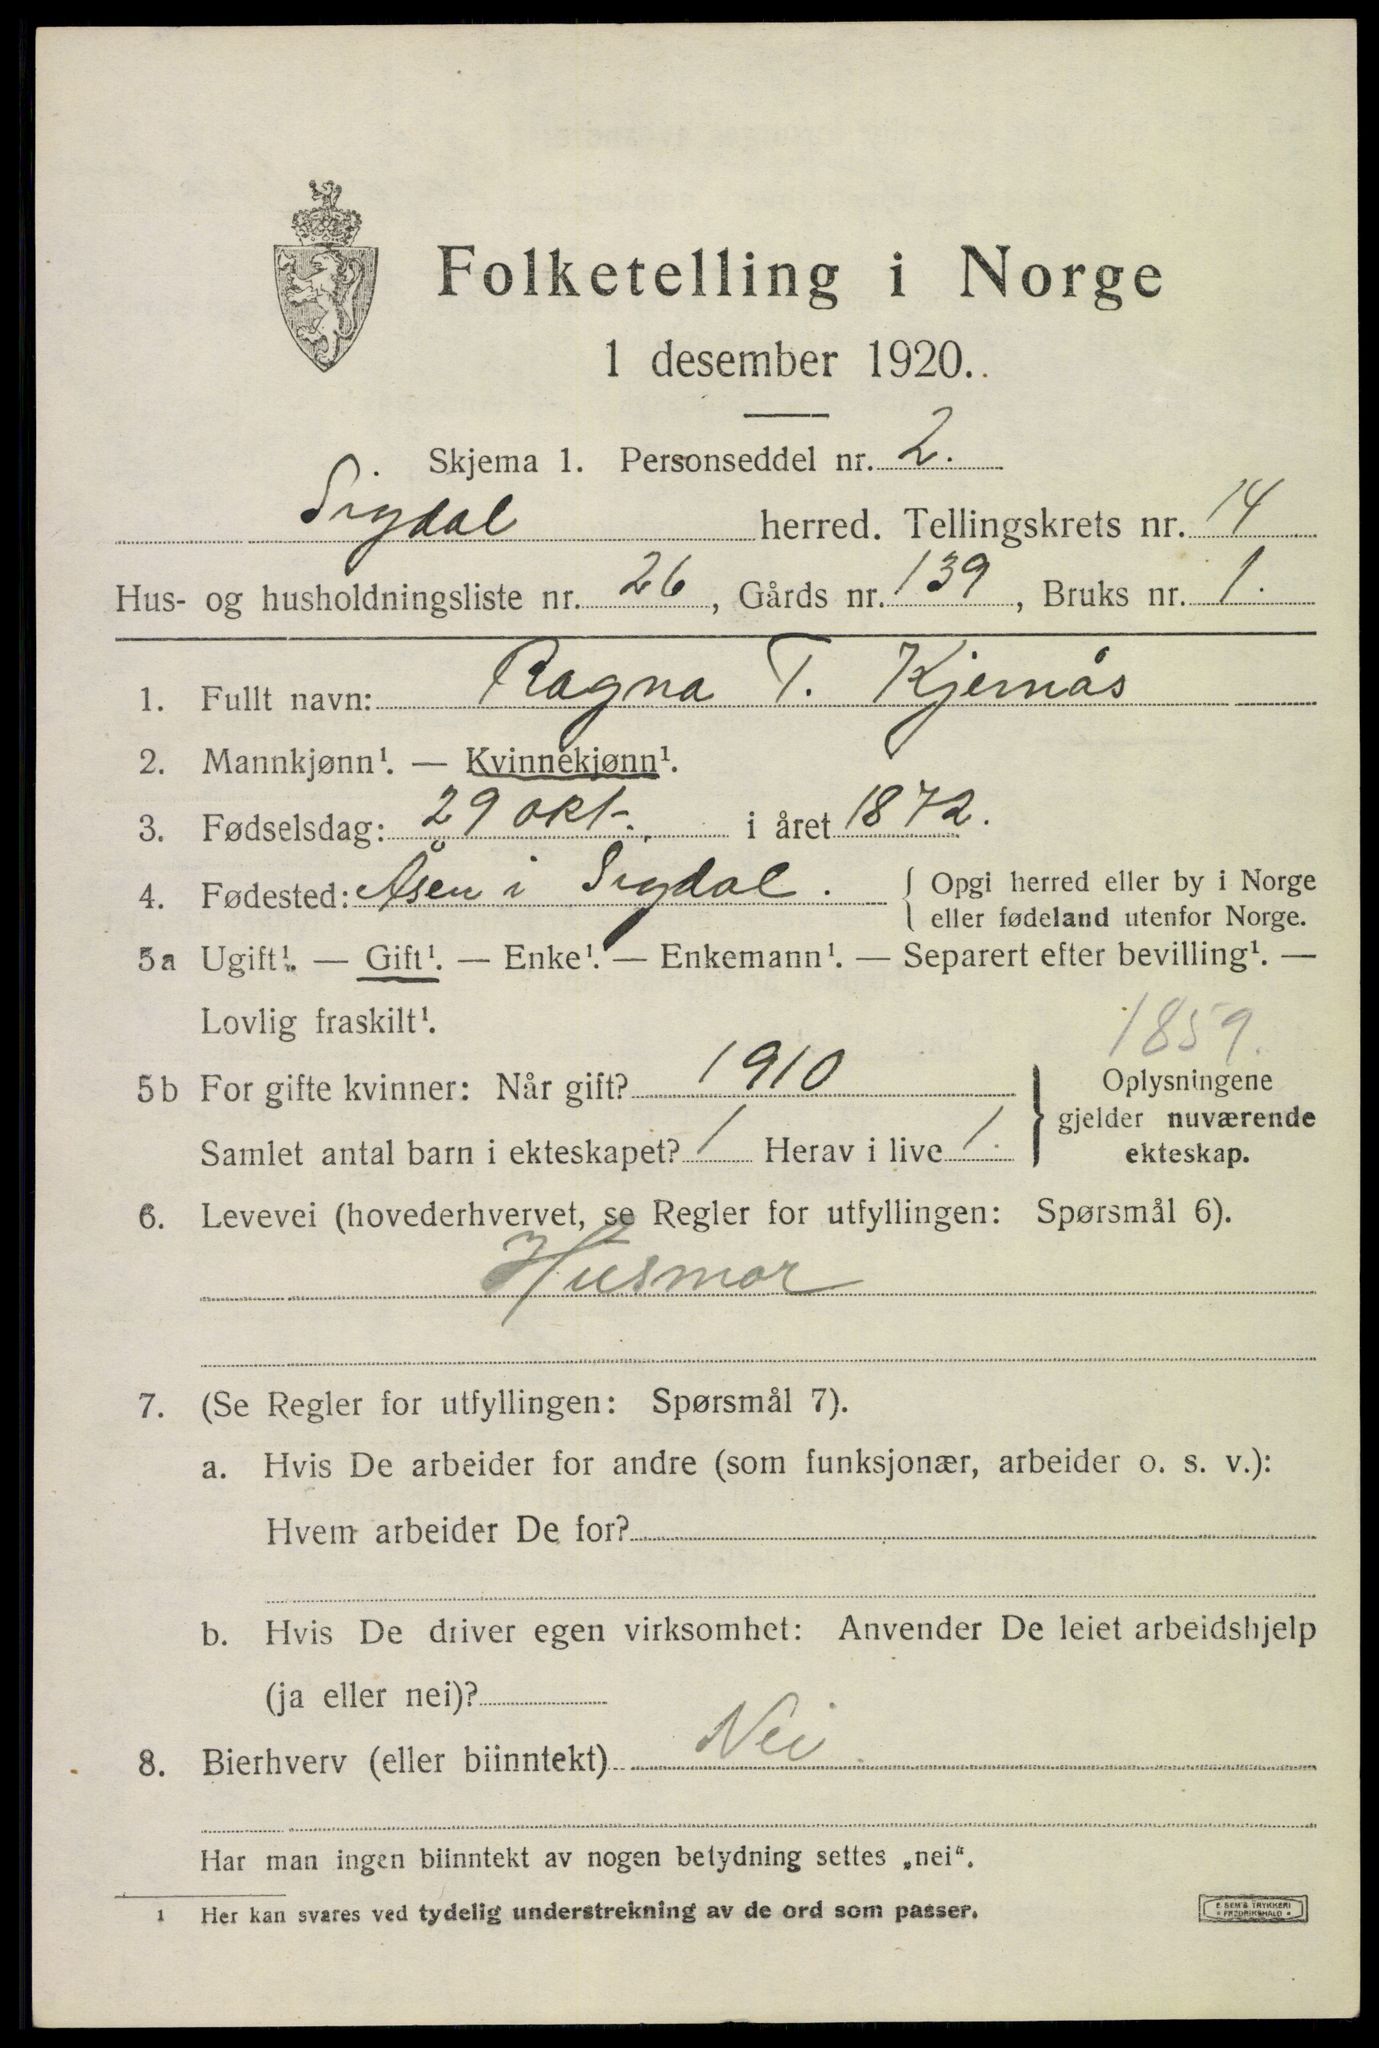 Folketelling i Norge
1 desember 1920.
Skjema 1. Personseddel nr. 2.
Sigdal herred. Tellingskrets nr. 14
Hus- og husholdningsliste nr. 26, Gårds nr. 139, Bruks nr. 1.
1. Fullt navn: Ragna T. Kjernås
2. Mannkjønn¹. — Kvinnekjønn¹.
3. Fødselsdag: 29 okt. i året 1872.
4. Fødested: Åsen i Sigdal. { Opgi herred eller by i Norge
eller fødeland utenfor Norge.
5a Ugift¹. — Gift¹. — Enke¹. — Enkemann¹. — Separert efter bevilling¹. —
Lovlig fraskilt¹.
1859.
5b For gifte kvinner: Når gift? 1910
Samlet antal barn i ekteskapet? 1 Herav i live 1.
} Oplysningene
gjelder nuværende
ekteskap.
6. Levevei (hovederhvervet, se Regler for utfyllingen: Spørsmål 6).
Husmor
7. (Se Regler for utfyllingen: Spørsmål 7).
a. Hvis De arbeider for andre (som funksjonær, arbeider o. s. v.):
Hvem arbeider De for?
b. Hvis De driver egen virksomhet: Anvender De leiet arbeidshjelp
(ja eller nei)?
8. Bierhverv (eller biinntekt) Nei.
Har man ingen biinntekt av nogen betydning settes „nei“.
1 Her kan svares ved tydelig understrekning av de ord som passer.
E SEM'S TRYKKERI
* FREDRIKSHALD *